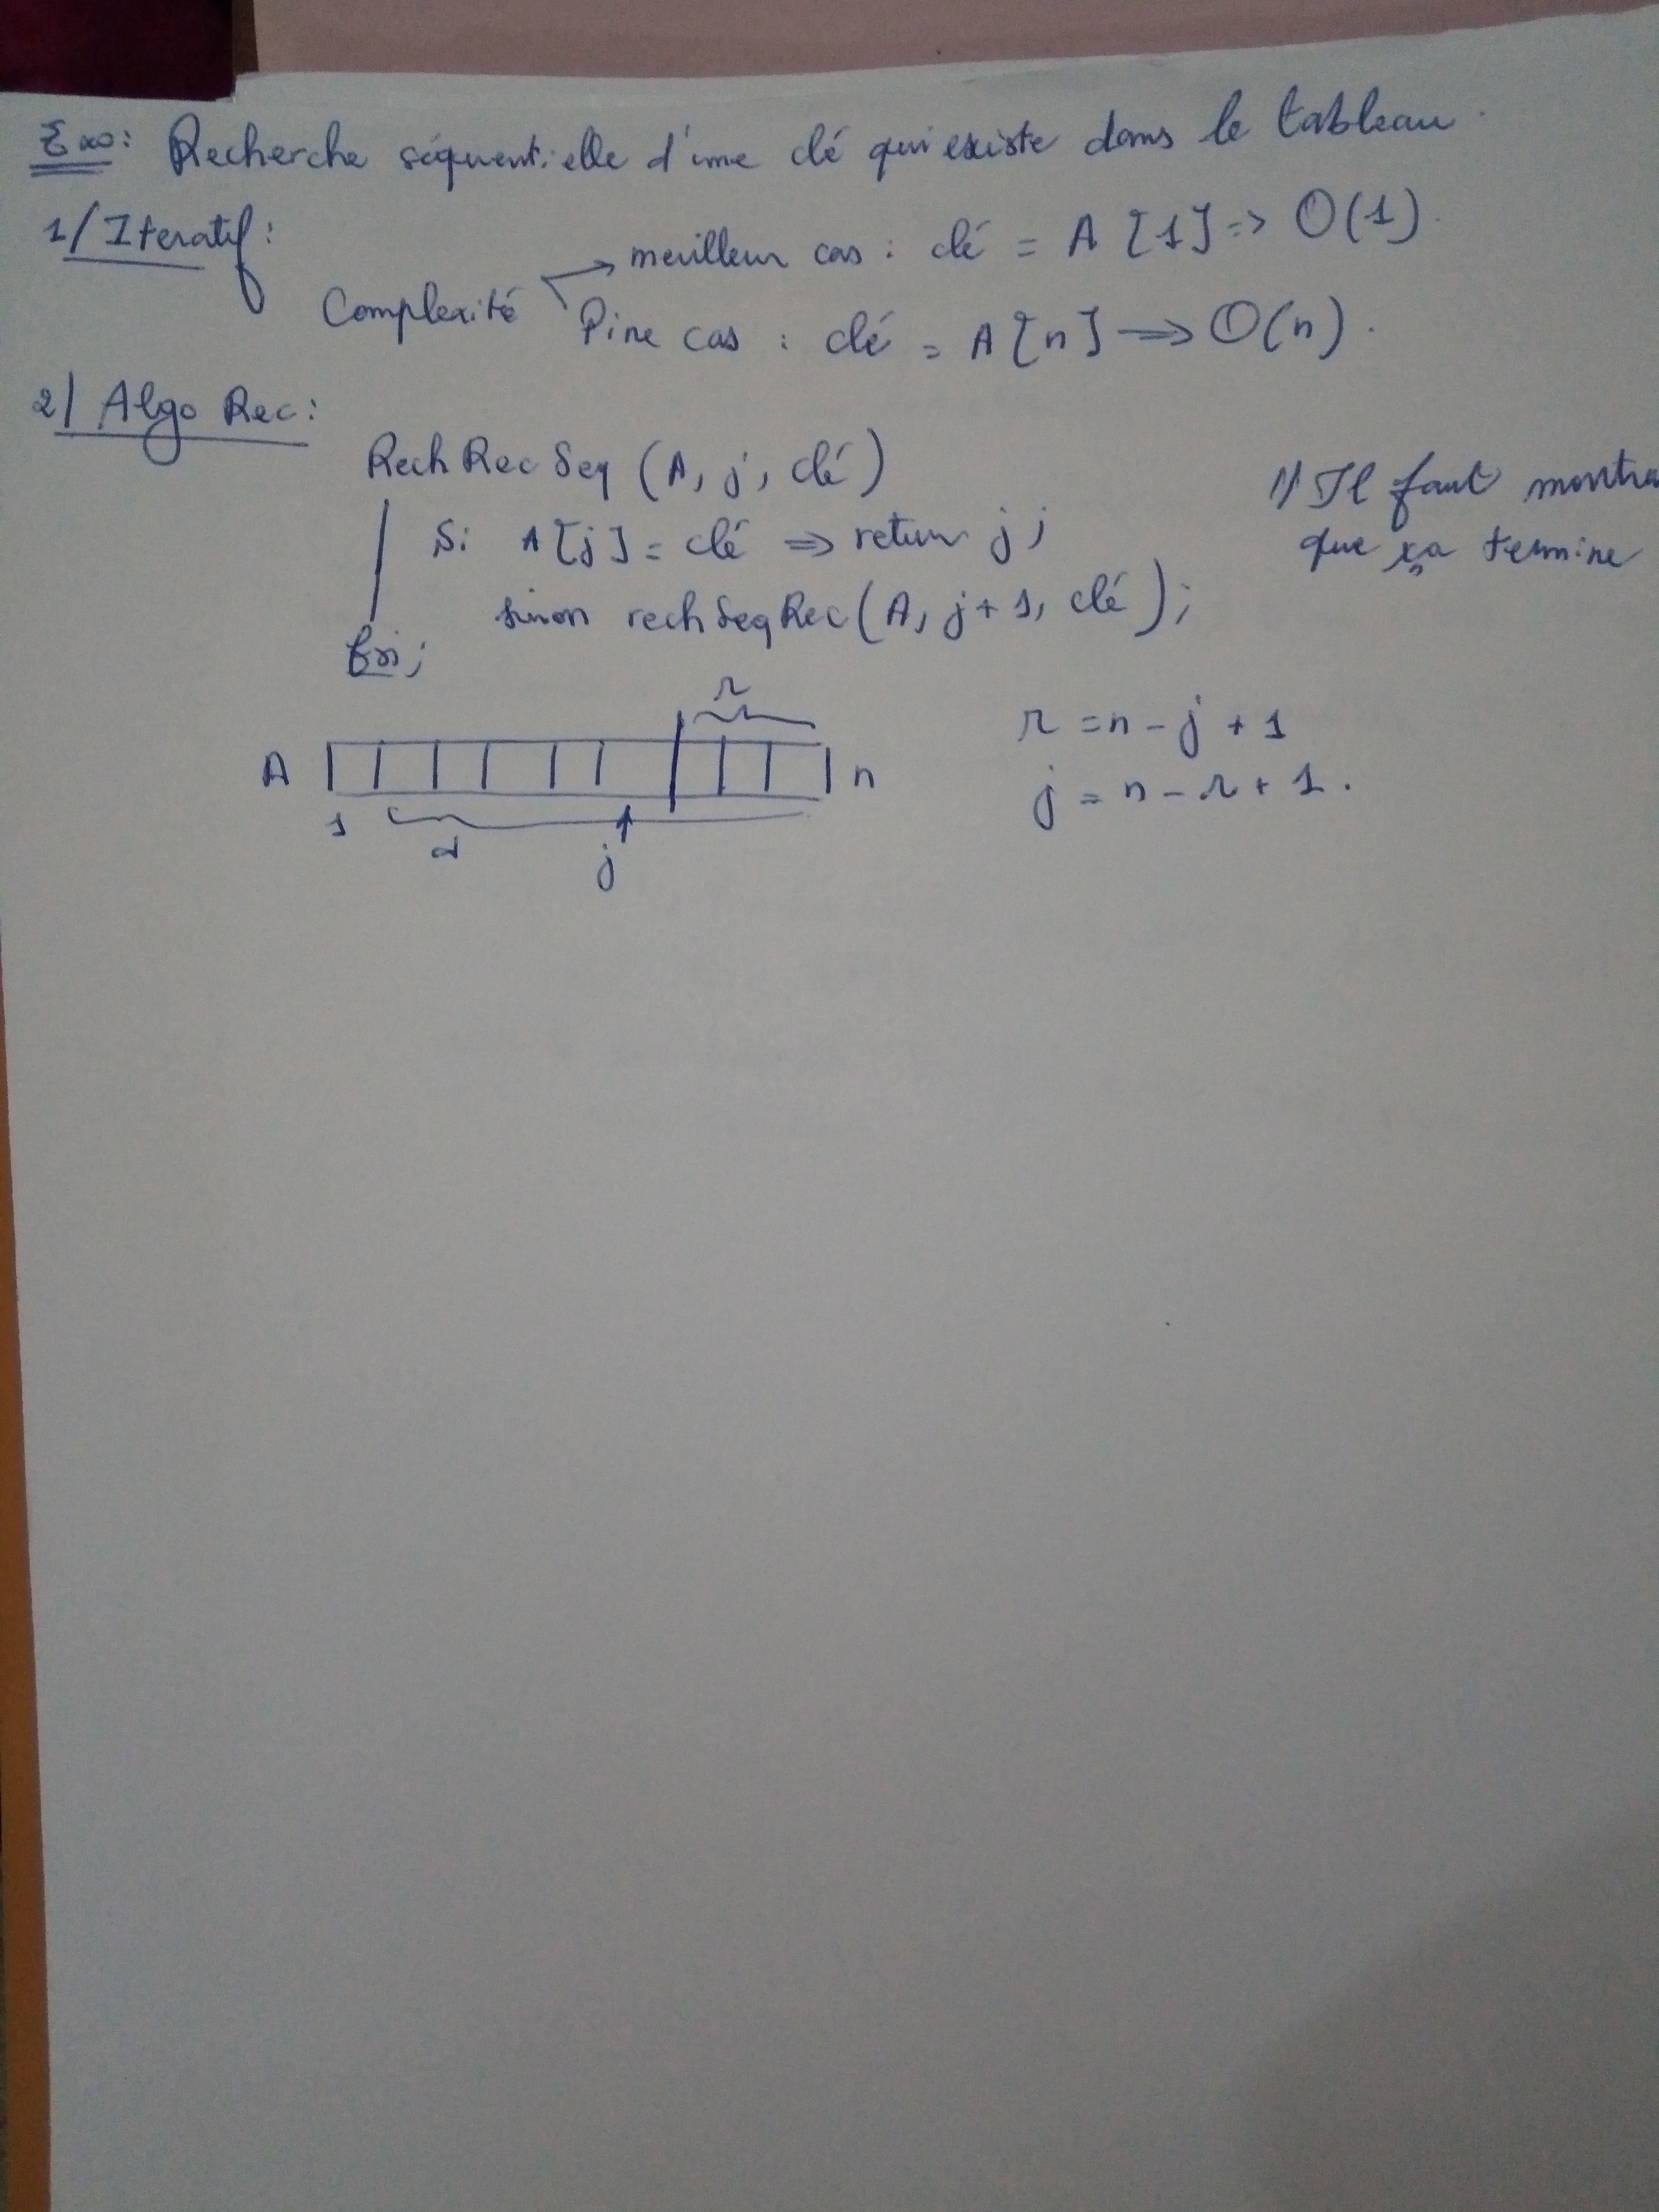 Exo: Recherche séquentielle d'une clé qui existe dans le tableau.
1/ Iteratif:
Complexité
meilleur cas : clé = A[1] => O(1).
Pire cas : clé = A[n] => O(n).
2/ Algo Rec:
RechRecSeq (A, j, clé)
Si A[j] = clé => return j;
sinon rechSeqRec(A, j+1, clé);
fin;
1) Il faut montre
que ça termine
r
A n
1 j
r = n - j + 1
j = n - r + 1.